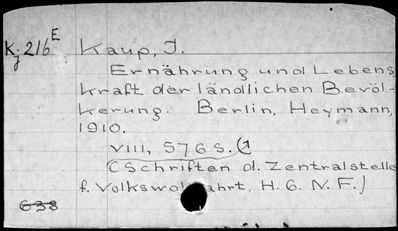 Kj 216 E Kaup, J.
Ernährung und Lebens
kraft der ländlichen Bevöl-
kerung. Berlin, Heymann,
1910.
VIII, 576 S.
(Schriften d. Zentralstelle
f. Volkswohlfahrt, H. 6. N. F.)
638